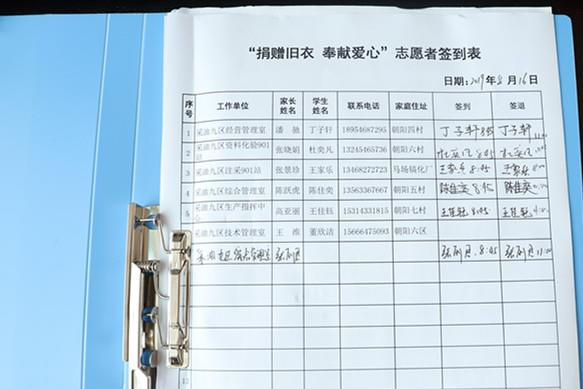 “捐赠旧衣 奉献爱心”志愿者签到表
日期：2019年8月16日
序号 工作单位 家长姓名 学生姓名 联系电话 家庭住址 签到 签退
1 采油九区经营管理室 潘驰 丁子轩 18954687295 朝阳四村 丁子轩 8:45 丁子轩
2 采油九区资料化验901站 张晓娟 杜奕凡 13245465736 朝阳六村 杜奕凡 8:45 杜奕凡
3 采油九区注采901站 张景珍 王家乐 13468272723 马场镐化厂 王家乐 8:45 王家乐
4 采油九区综合管理室 陈跃虎 陈佳奕 13563367667 朝阳五村 陈佳奕 8:45 陈佳奕
5 采油九区生产指挥中心 高亚丽 王佳钰 15314331815 朝阳七村 王佳钰 8:45 王佳钰
采油九区技术管理室 王维 董欣洁 15666475093 朝阳六区
8:45 11:00